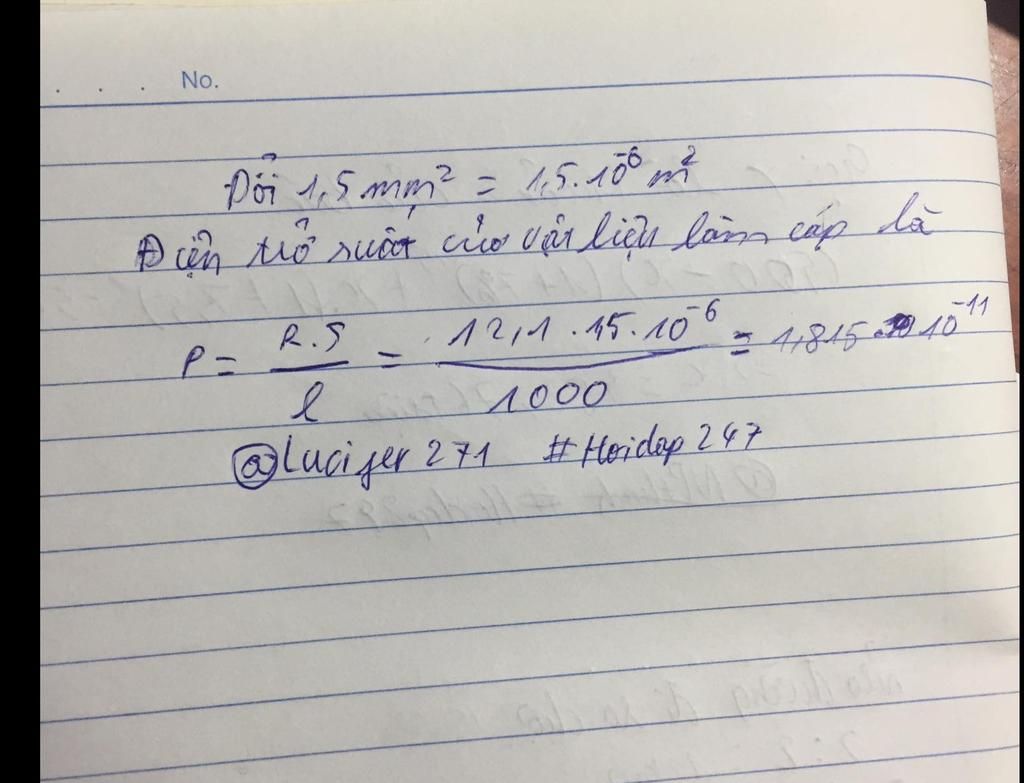 No.
Đổi 1,5 mm² = 1,5.10⁻⁶ m²
Điện trở suất của vật liệu làm cáp là
P = R.S / l = 12,1 . 1,5.10⁻⁶ / 1000 = 1,815 10⁻¹¹
@Lucifer271 #Hoidap247